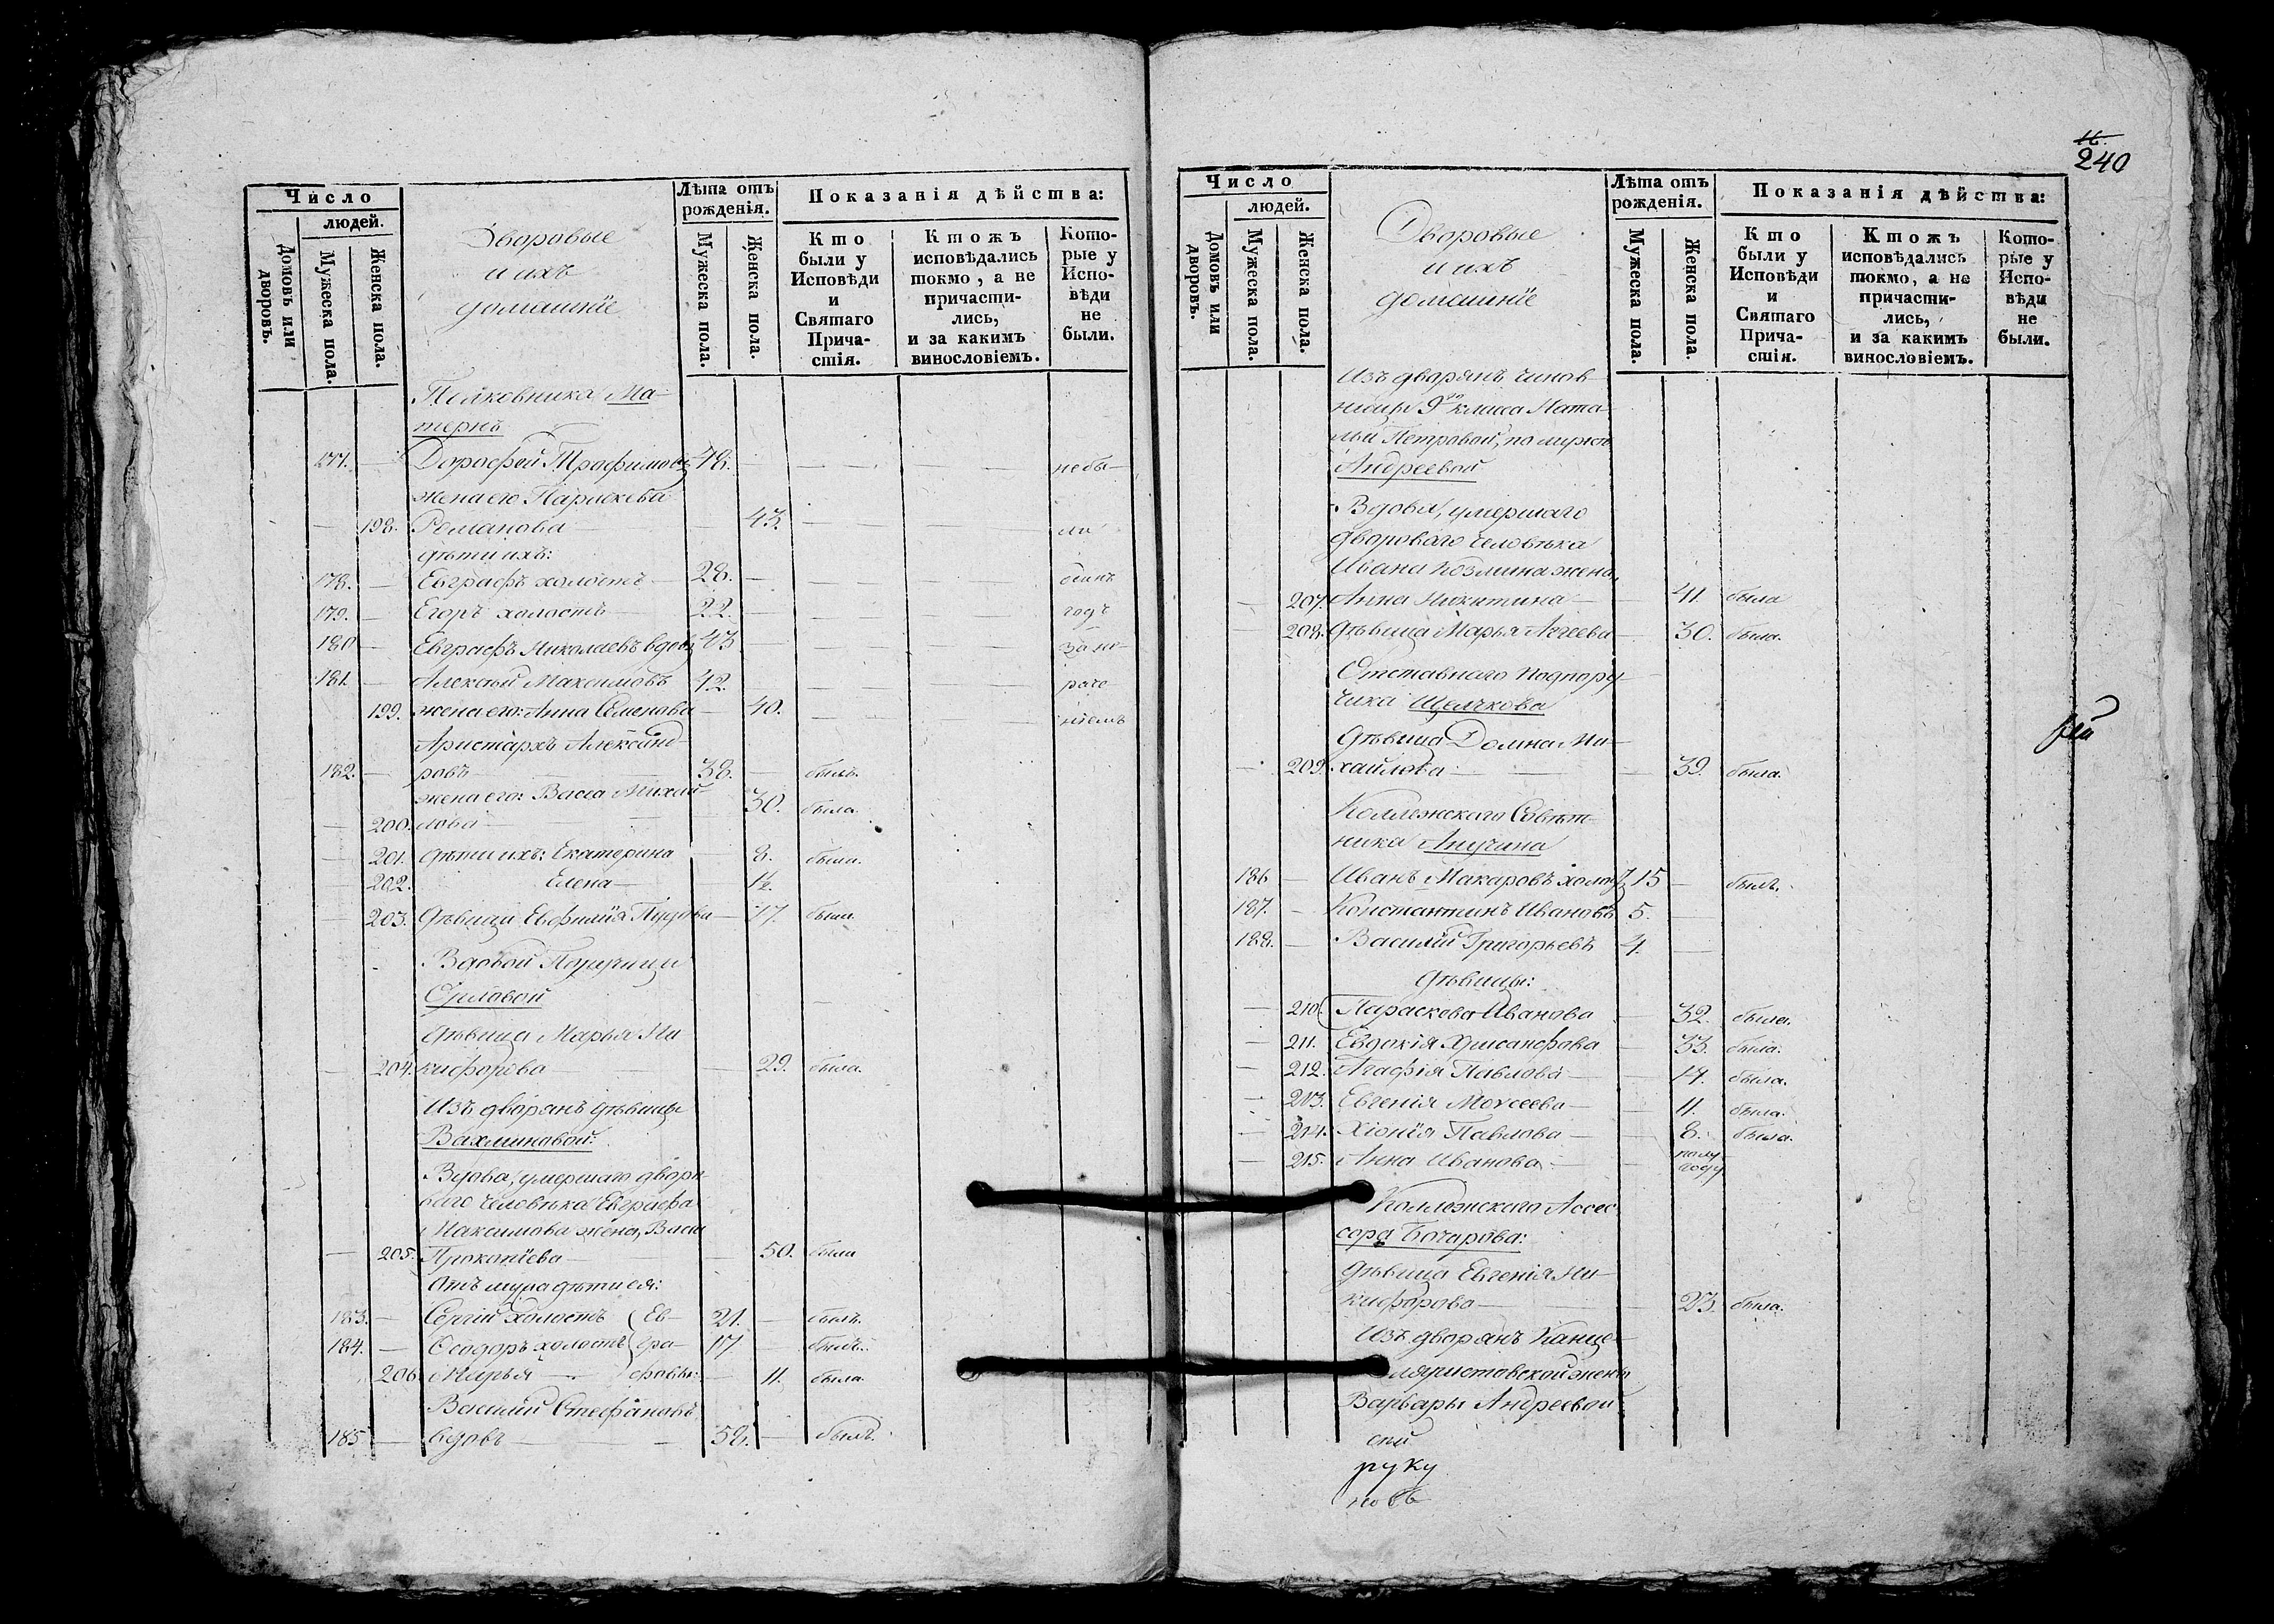 Число
людей.
Домовъ или дворовъ.
Мужеска пола.
Женска пола.
Дворовые
и ихъ
домашніе
Лѣта отъ
рожденія.
Мужеска пола.
Женска пола.
Показанія дѣйства:
Кто
были у
Исповѣди
и
Святаго
Прича-
стія.
Ктожъ
исповѣдались
токмо, а не
причасти-
лись,
и за какимъ
винословіемъ.
Кото-
рые у
Испо-
вѣди
не
были.
Полковника Ма-
тернъ
177. — Дорофей Трофимовъ 48. — — — — небы-
жена его Параскева
— 198. Романова — — 43. — — ли
дѣти ихъ:
178. — Евграфъ холостъ 28. — — —
179. — Егоръ холостъ — 22. — — — годъ
180 — Евграфъ Николаевъ вдовъ 43 — —
181. — Алексѣй Максимовъ 42. — — —
199. жена его: Анна Семенова — 40. — —
Аристархъ Александ-
182. — ровъ — 38. — былъ.
жена его: Васса Михай-
— 200. лова — — 30. была.
— 201. дѣти ихъ: Екатерина — 8. была.
— 202. Елена — — 1½.
— 203. Дѣвица Евфимія — 17. была.
Вдовой Поручицы
Орловой
Дѣвица Марья Ни
— 204. кифорова — — 29. была.
Изъ дворянъ дѣвицы
Вахминовой:
Вдова, умершаго дворо
ваго человѣка Евграфа
Максимова жена, Васса
— 205. Прокопіева — — 50. была
отъ мужа дѣти ея:
183. — Сергій холостъ (Ев- 21. — былъ.
184. — Ѳеодоръ холостъ гра- 17 — былъ.
206 Марья — фовы: — 11. была.
Василій Стефановъ
185 — вдовъ — — 58. — былъ.
240
Число
людей.
Домовъ или дворовъ.
Мужеска пола.
Женска пола.
Дворовые
и ихъ
домашніе
Лѣта отъ
рожденія.
Мужеска пола.
Женска пола.
Показанія дѣйства:
Кто
были у
Исповѣди
и
Святаго
Прича-
стія.
Ктожъ
исповѣдались
токмо, а не
причасти-
лись,
и за какимъ
винословіемъ.
Кото-
рые у
Испо-
вѣди
не
были.
Изъ дворянъ чинов-
ницы 9го класса Ната-
льи Петровой, по мужѣ
Андреевой
Вдова, умершаго
двороваго человѣка
Ивана Козмина жена,
— 207. Анна Никитина — 41. была
— 208. Дѣвица Марья Аггеева — 30. была.
Отставнаго Подпору-
чика Щелчкова
Дѣвица Домна Ми-
— 209. хайлова — — — 39. была.
Коллежскаго Совѣт-
ника Анучина
186 — Иванъ Макаровъ холостъ 15 — былъ.
187. — Константинъ Ивановъ 5. —
188. — Василій Григорьевъ 4. —
Дѣвицы:
— 210. Параскева Иванова — 32. была.
— 211. Евдокія Хрисанфова — 33. была.
— 212. Агафія Павлова — 17. была.
— 213. Евгенія Моисеева — 11. была.
— 214. Хіонія Павлова — 8. была.
— 215. Анна Иванова — — полу
году
Коллежскаго Ассес-
сора Бочарова:
Дѣвица Евгенія Ни-
кифорова — — 23. была.
Изъ дворянъ Канце-
ляристовской жены
Варвары Андреевой
руку